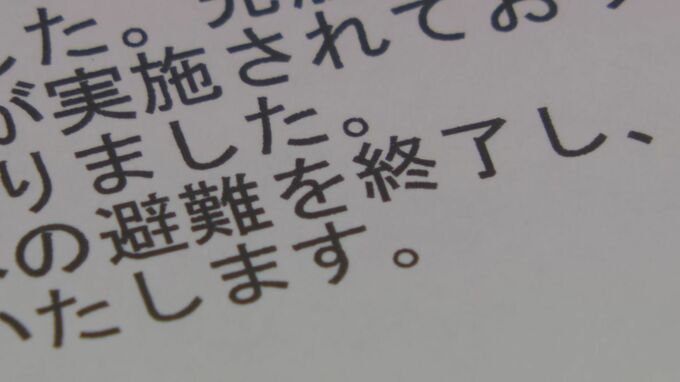 した。
が実施されてお
りました。
の避難を終了し、
いたします。